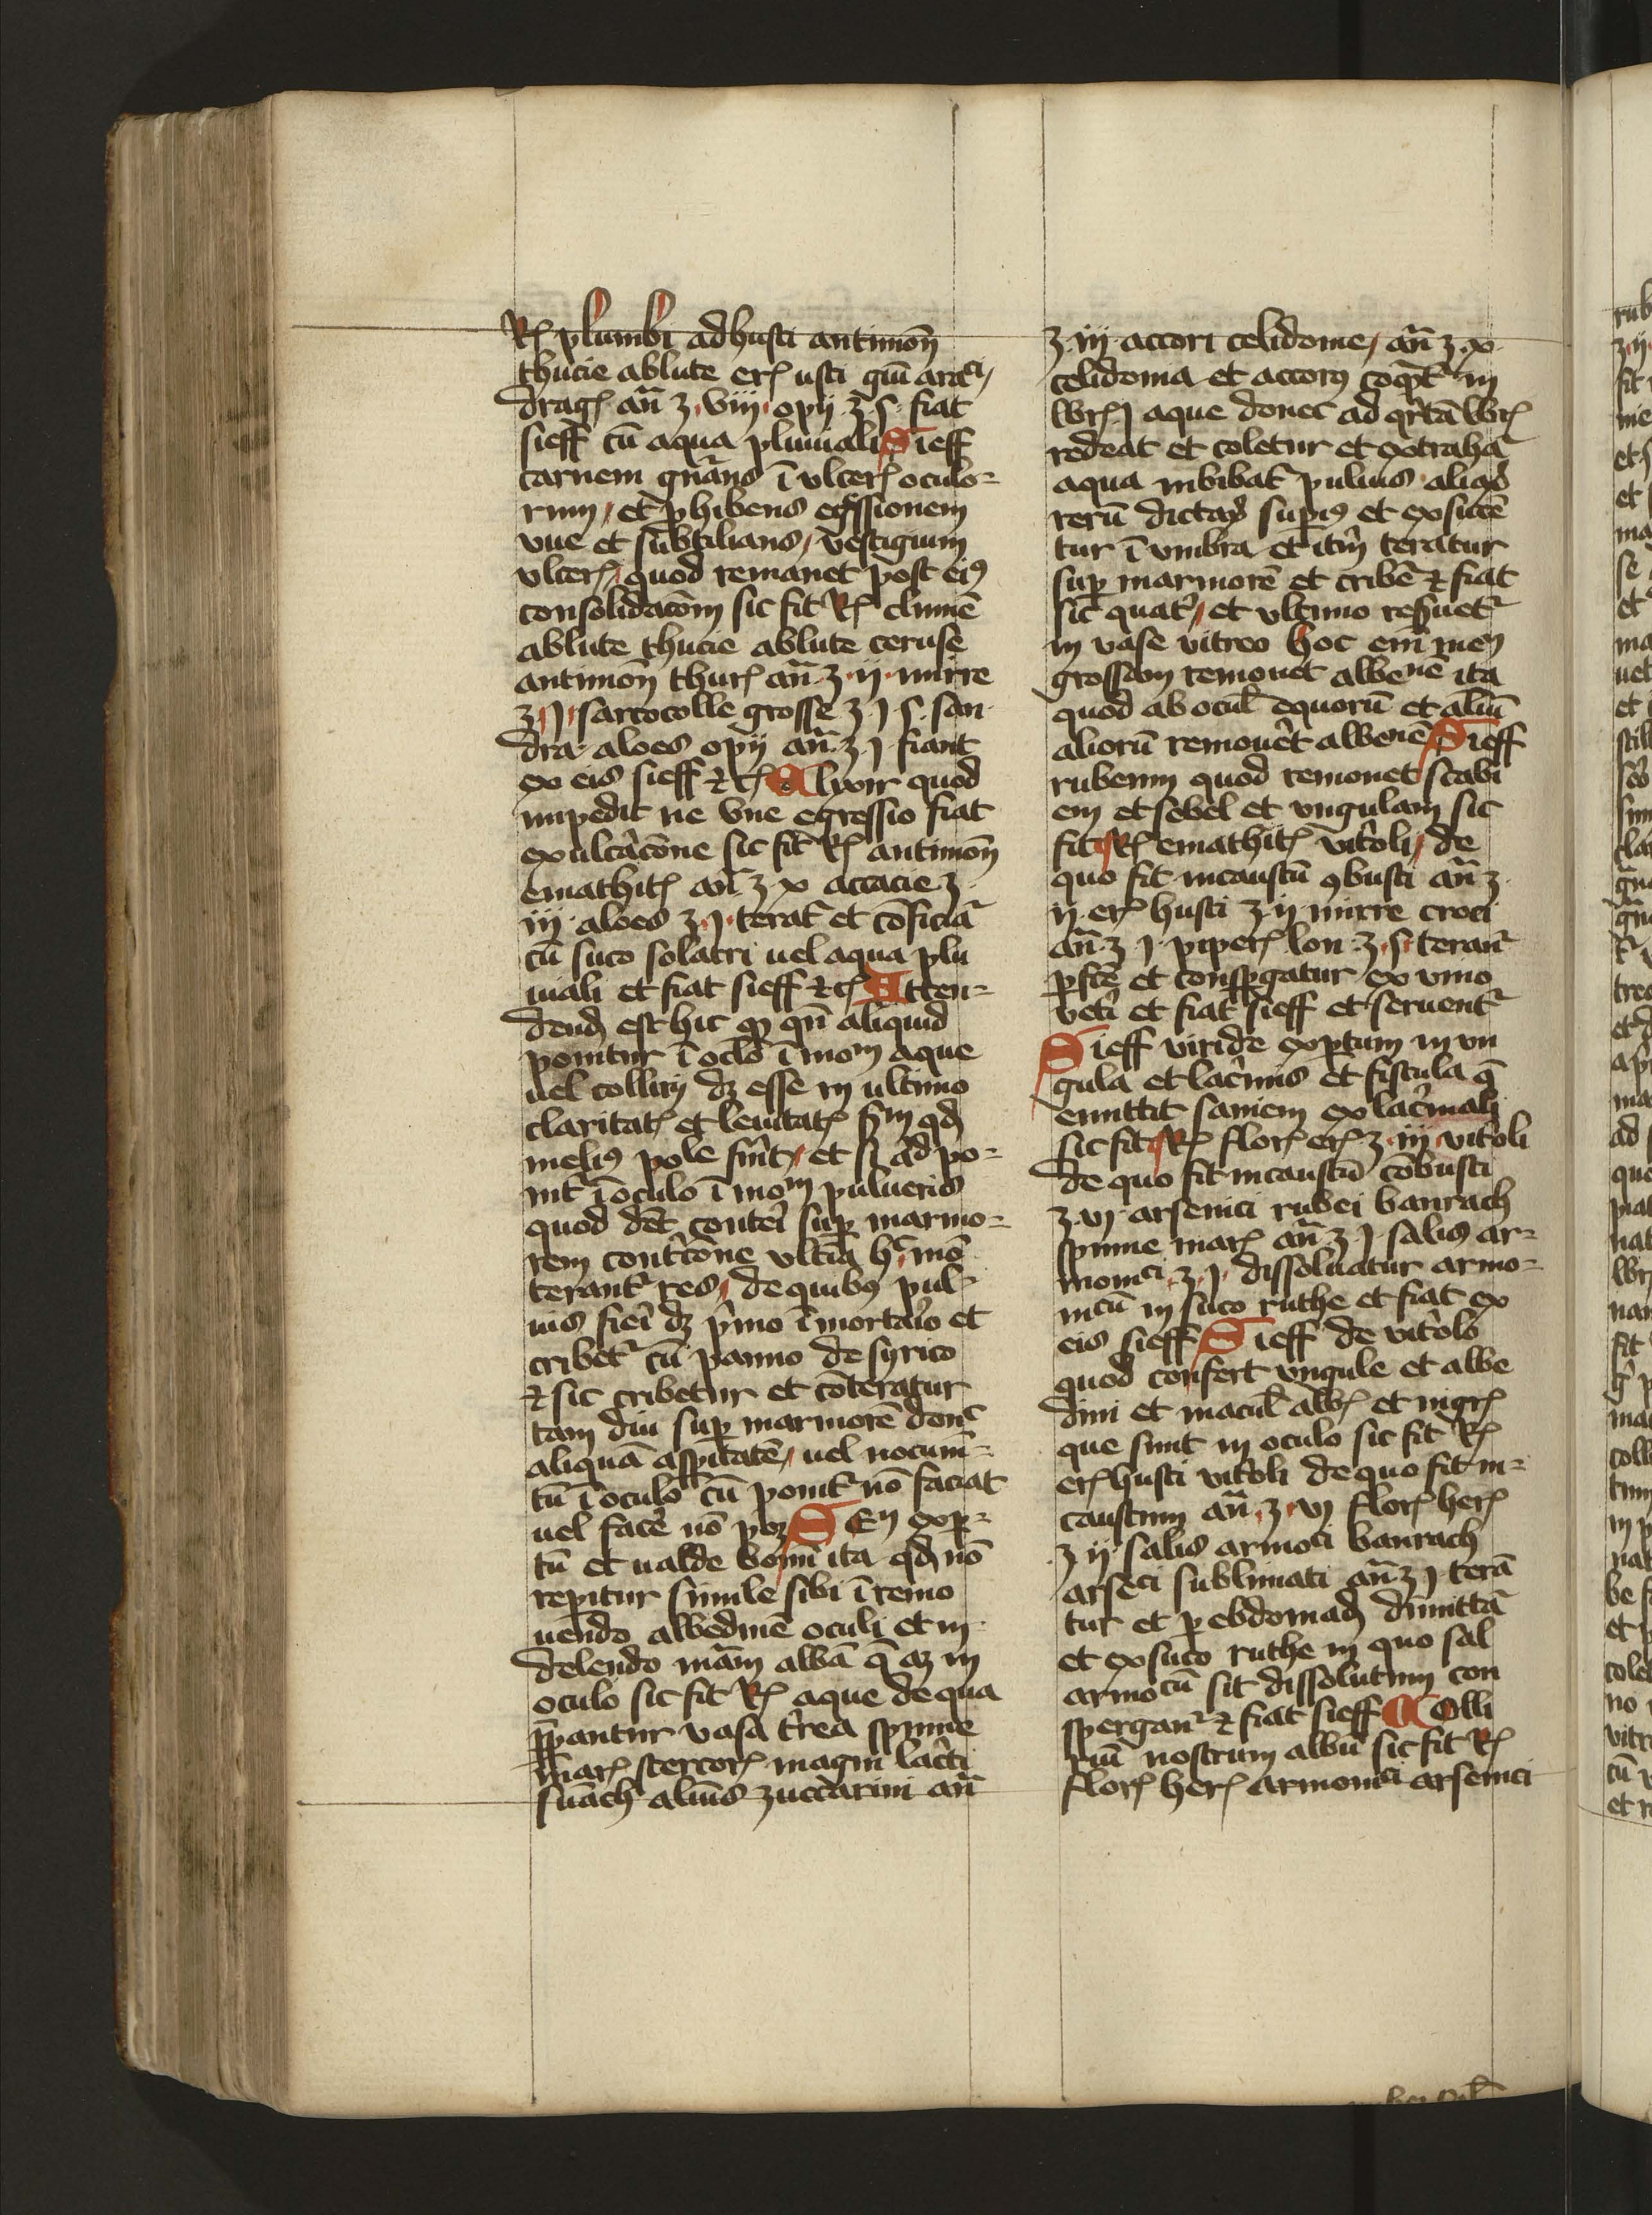 Rꝭ plumbi adhusti antimoñ
thucie ablute erꝭ usti gūi araci
dragꝭ añ ʒ viii opii ʒ s fiat
sieff cū aqua pluuiali Sieff
carnem gn̄ans ī vlcerꝭ oculo=
rum et ꝓhibens egressionem
vue et subtilians vestigium
vlcerꝭ quod remanet post eiꝰ
consolidacōm sic fit Rꝭ climie
ablute thucie ablute ceruse
antimoñ thurꝭ añ ʒ ii mirre
ʒ i sarcocolle grosse ʒ i s san
dra aloes opii añ ʒ i fiant
ex eis sieff ⁊cꝭ Alixir quod
impedit ne vue egressio fiat
ex ulcerac̄one sic fit Rꝭ antimoñ
emathitꝭ añ ʒ x accacie ʒ
iii aloes ʒ i terat᷑ et cōficiat᷑
cū suco solatri uel aqua plu
uiali et fiat sieff ⁊cꝭ Atten=
dend est hic ꝙ qn̄ aliquid
ponitur ī oclo ī mom aque
uel collirii dꝫ esse in ultimo
claritatꝭ et leuitatꝭ scdm qd
meliꝰ pole sint et si ad po=
nit᷑ ī oculo ī mom pulueris
quod dēt conteri suꝑ marmo=
rem contricōne vltīa hc mō
terant᷑ res de quibꝰ pul=
uis fieri dꝫ primo ī mortario et
cribet᷑ cū panno de syrico
⁊ sic cribetur et cōteratur
tam diu suꝑ marmorē donc
aliquā aspitatē uel nocum=
tū ī oculo cū ponit᷑ nō faciat
uel facē nō poꝫ Sieff exꝑ=
tū et ualde bonū ita qd nō
repitur simile sibi ī remo
uendo albedinē oculi et in
delendo mām albā q̄ aꝫ in
oculo sic fit Rꝭ aque de qua
ꝑpantur vasa terrea spume
marꝭ stercorꝭ magni lacerti
suach alius zuccarini añ
ʒ iii accori celidonie añ ʒ x
celidonia et accorꝰ coqt᷑ in
librꝭ i aque donec ad qrtā librꝭ
redeat et coletur et extraha
aqua inbibat᷑ puluis aliqd
rerū dictarꝫ supiꝰ et exsicce
tur ī vmbra et itm teratur
suꝑ marmorē et cribē ⁊ fiat
sic quatꝰ et vltimo resuet᷑
in vase vitreo hoc em
grossam remouet albenē ita
quod ab ocul equorū et aliū
aliorū remouēt albenē Sieff
rubeum quod remouet scabi
em et sebel et vngulam sic
fit Rꝭ emathitꝭ vitoli de
quo fit incaustū ꝯbusti añ ʒ
ii erꝭ husti ʒ ii mirre croci
añ ʒ i piperꝭ lon ʒ s terant᷑
ꝑfcē et conspgatur ex vino
vetī et fiat sieff et seruent᷑
Sieff viride exptum in vn
gula et lacimis et fistula q̄
emittit saniem ex lacimali
sic fit Rꝭ florꝭ erꝭ ʒ iii vitoli
de quo fit incaustū cōbusti
ʒ vi arsenici rubei banrach
spume marꝭ añ ʒ i salis ar=
monici ʒ i dissoluatur armo=
nicū in suco ruthe et fiat ex
eis sieff Sieff de vitolo
quod confert vngule et albe
dini et macul albꝭ et nigrꝭ
que sunt in oculo sic fit Rꝭ
erꝭ husti vitoli de quo fit in=
caustum añ ʒ vi florꝭ herꝭ
ʒ ii salis armoci banrach
arseci sublimati añ ʒ i terā
tur et ꝑ ebdomad dimittā
et ex suco ruthe in quo sal
armocū sit dissolutum con
spergan᷑ ⁊ fiat sieff Colli
riū nostrum albū sic fit Rꝭ
florꝭ herꝭ armonici arsenici